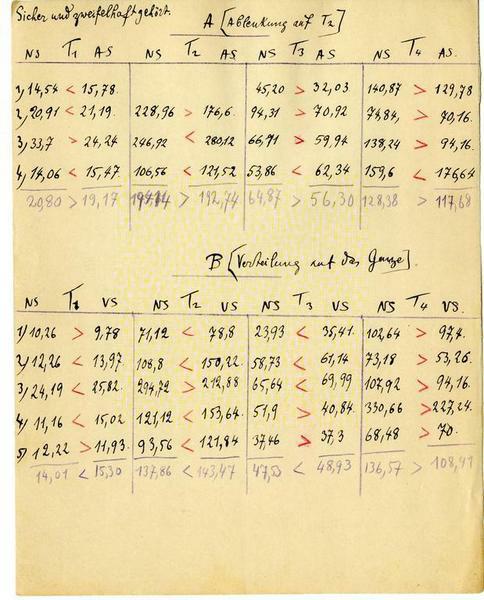 Sicher und zweifelhaft gehört.
A [Ablenkung auf T2]
NS T1 AS NS T2 AS NS T3 AS NS T4 AS.
1) 14,54 < 15,78. 45,20 > 32,03 140,87 > 129,78
2) 20,91 < 21,19. 228,96 > 176,6. 94,31 > 70,92 74,84, > 70,16.
3) 33,7 > 24,24 246,92 < 280,12 66,71 > 59,94 138,24 > 94,16.
4) 14,06 < 15,47. 106,56 < 121,52 53,86 < 62,34 159,6 < 176,64
20,80 > 19,17 > 192,74 64,87 > 56,30 128,38 > 117,68
B [Verteilung auf das Ganze].
NS T1 VS NS T2 VS NS T3 VS NS T4 VS.
1) 10,26 > 9,78 71,12 < 78,8 23,93 < 35,41. 102,64 > 97,4.
2) 12,26 < 13,97. 108,8 < 150,22. 58,73 < 61,14 73,18 > 53,26.
3) 24,19 < 25,82. 294,72 > 212,88 65,64 < 69,99 107,92 > 94,16
4) 11,16 < 15,02 121,12 < 153,64. 51,9 > 40,84. 330,66 > 227,24.
5) 12,22 > 11,93. 93,56 < 121,84 37,46 > 37,3 68,48 < 70.
14,01 < 15,30 137,86 < 143,47 47,53 < 48,93 136,57 > 108,41